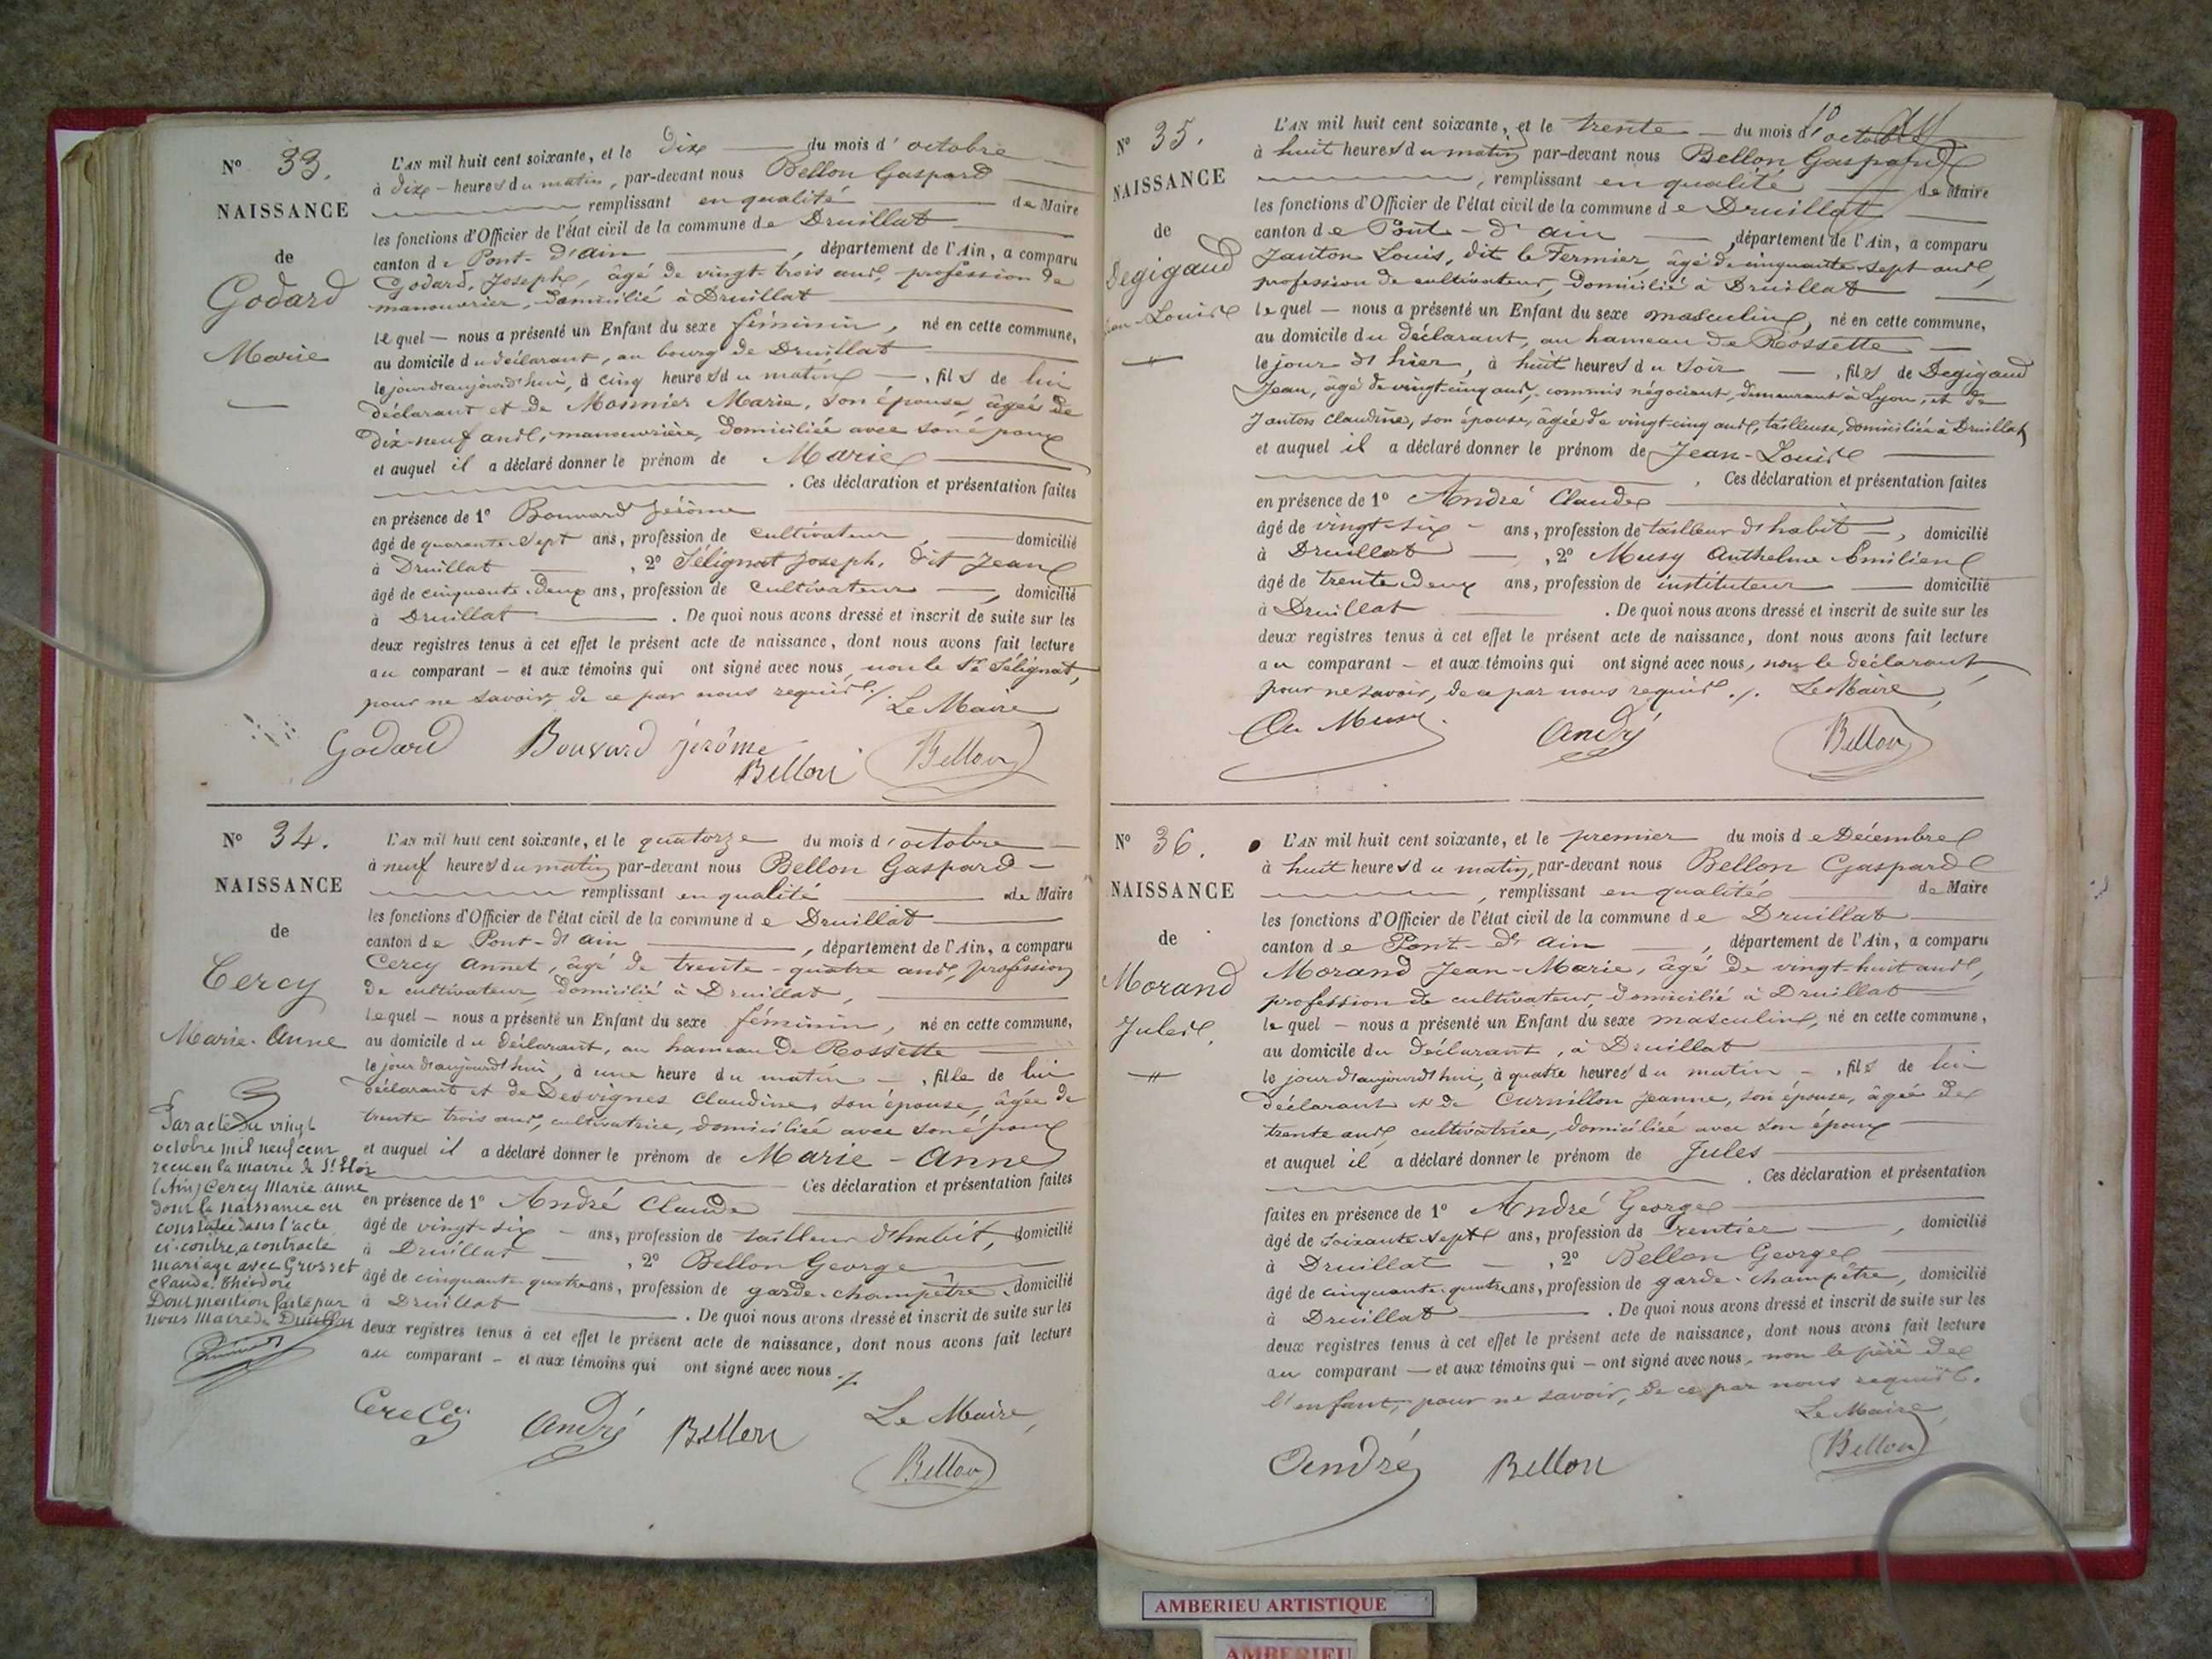 N° 33.
NAISSANCE
de
Godard
Marie
L'AN mil huit cent soixante, et le dix du mois d'octobre
à dix heures du matin, par-devant nous Bellon Gaspard
remplissant en qualité de Maire
les fonctions d'Officier de l'état civil de la commune de Druillat
canton de Pont-d'ain, département de l'Ain, a comparu
Godard, Joseph, âgé de vingt-trois ans, profession de
manouvrier, domicilié à Druillat
lequel nous a présenté un Enfant du sexe féminin, né en cette commune,
au domicile du déclarant, au bourg de Druillat
le jour d'aujourd'hui, à cinq heures du matin, fils de lui
déclarant et de Monnier Marie, son épouse, âgée de
dix-neuf ans, manouvrière, domiciliée avec son époux
et auquel il a déclaré donner le prénom de Marie
. Ces déclaration et présentation faites
en présence de 1° Bouvard Jérôme
âgé de quarante-sept ans, profession de cultivateur, domicilié
à Druillat, 2° Sélignat Joseph, dit Jean
âgé de cinquante-deux ans, profession de cultivateur, domicilié
à Druillat. De quoi nous avons dressé et inscrit de suite sur les
deux registres tenus à cet effet le présent acte de naissance, dont nous avons fait lecture
au comparant et aux témoins qui ont signé avec nous, non le Sr Sélignat,
pour ne savoir, de ce par nous requis ./. Le Maire
Godard Bouvard jérôme Bellon Bellon
N° 34.
NAISSANCE
de
Cercy
Marie-Anne
Par acte du vingt
octobre mil neuf cent
reçu en la mairie de St Eloi
(Ain) Cercy Marie anne
dont la naissance est
constatée dans l'acte
ci-contre, a contracté
mariage avec Grosset
Claude Théodore
Dont mention faite par
nous Maire de Druillat
L'AN mil huit cent soixante, et le quatorze du mois d'octobre
à neuf heures du matin par-devant nous Bellon Gaspard
remplissant en qualité de Maire
les fonctions d'Officier de l'état civil de la commune de Druillat
canton de Pont-d'ain, département de l'Ain, a comparu
Cercy Annet, âgé de trente-quatre ans, profession
de cultivateur, domicilié à Druillat,
lequel nous a présenté un Enfant du sexe féminin, né en cette commune,
au domicile du déclarant, au hameau de Rossette
le jour d'aujourd'hui, à une heure du matin, fille de lui
déclarant et de Desvignes Claudine, son épouse, âgée de
trente trois ans, cultivatrice, domiciliée avec son époux
et auquel il a déclaré donner le prénom de Marie-Anne
Ces déclaration et présentation faites
en présence de 1° André Claude
âgé de vingt-six ans, profession de tailleur d'habit, domicilié
à Druillat, 2° Bellon George
âgé de cinquante-quatre ans, profession de garde-champêtre, domicilié
à Druillat. De quoi nous avons dressé et inscrit de suite sur les
deux registres tenus à cet effet le présent acte de naissance, dont nous avons fait lecture
au comparant et aux témoins qui ont signé avec nous ./.
Cercy André Bellon Le Maire,
Bellon
N° 35.
NAISSANCE
de
Degigaud
Jean-Louis
L'AN mil huit cent soixante, et le trente du mois d'octobre
à huit heures du matin par-devant nous Bellon Gaspard
, remplissant en qualité de Maire
les fonctions d'Officier de l'état civil de la commune de Druillat
canton de Pont-d'ain, département de l'Ain, a comparu
Janton Louis, dit le Fermier, âgé de cinquante-sept ans,
profession de cultivateur, domicilié à Druillat
lequel nous a présenté un Enfant du sexe masculin, né en cette commune,
au domicile du déclarant, au hameau de Rossette
le jour d'hier, à huit heures du soir, fils de Degigaud
Jean, âgé de vingt-cinq ans, commis négociant, demeurant à Lyon, et de
Janton Claudine, son épouse, âgée de vingt-cinq ans, tailleuse, domiciliée à Druillat
et auquel il a déclaré donner le prénom de Jean-Louis
. Ces déclaration et présentation faites
en présence de 1° André Claude
âgé de vingt-six ans, profession de tailleur d'habit, domicilié
à Druillat, 2° Musy Anthelme Emilien
âgé de trente-deux ans, profession de instituteur domicilié
à Druillat. De quoi nous avons dressé et inscrit de suite sur les
deux registres tenus à cet effet le présent acte de naissance, dont nous avons fait lecture
au comparant et aux témoins qui ont signé avec nous, non le déclarant,
pour ne savoir, de ce par nous requis ./. Le Maire,
Musy André Bellon
N° 36.
NAISSANCE
de
Morand
Jules
L'AN mil huit cent soixante, et le premier du mois de Décembre
à huit heures du matin, par-devant nous Bellon Gaspard
, remplissant en qualité de Maire
les fonctions d'Officier de l'état civil de la commune de Druillat
canton de Pont-d'ain, département de l'Ain, a comparu
Morand Jean-Marie, âgé de vingt-huit ans,
profession de cultivateur, domicilié à Druillat
lequel nous a présenté un Enfant du sexe masculin, né en cette commune,
au domicile du déclarant, à Druillat
le jour d'aujourd'hui, à quatre heures du matin, fils de lui
déclarant et de Curnillon Jeanne, son épouse, âgée de
trente ans, cultivatrice, domiciliée avec son époux
et auquel il a déclaré donner le prénom de Jules
. Ces déclaration et présentation
faites en présence de 1° André George
âgé de soixante-sept ans, profession de rentier, domicilié
à Druillat, 2° Bellon George
âgé de cinquante-quatre ans, profession de garde-champêtre, domicilié
à Druillat. De quoi nous avons dressé et inscrit de suite sur les
deux registres tenus à cet effet le présent acte de naissance, dont nous avons fait lecture
au comparant et aux témoins qui ont signé avec nous, non le père de
l'enfant, pour ne savoir, de ce par nous requis.
Le Maire,
André Bellon Bellon
AMBERIEU ARTISTIQUE
AMBERIEU